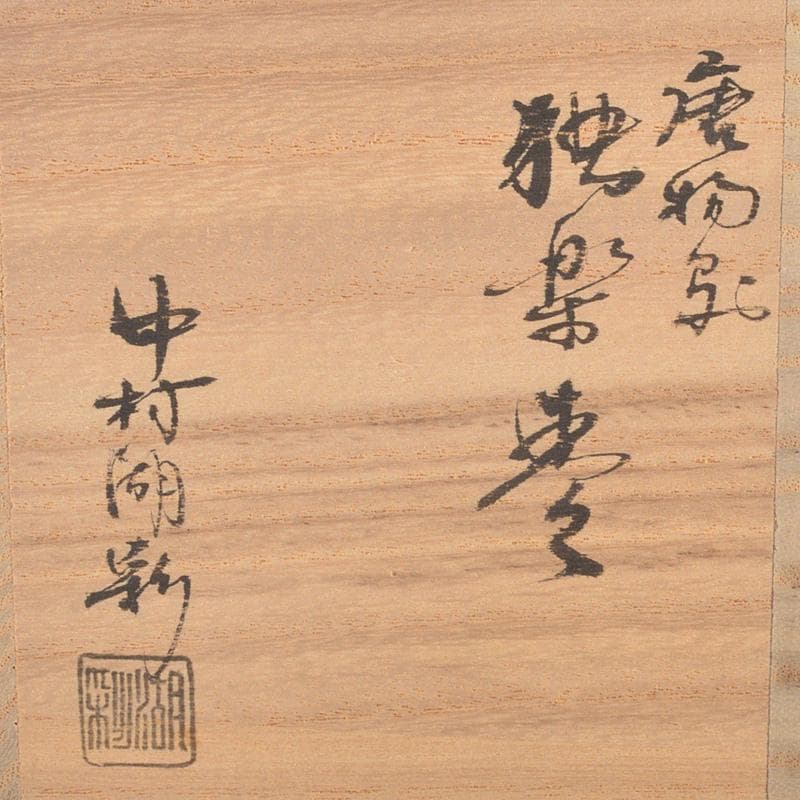 唐物写
独楽棗
中村湖彩
湖彩